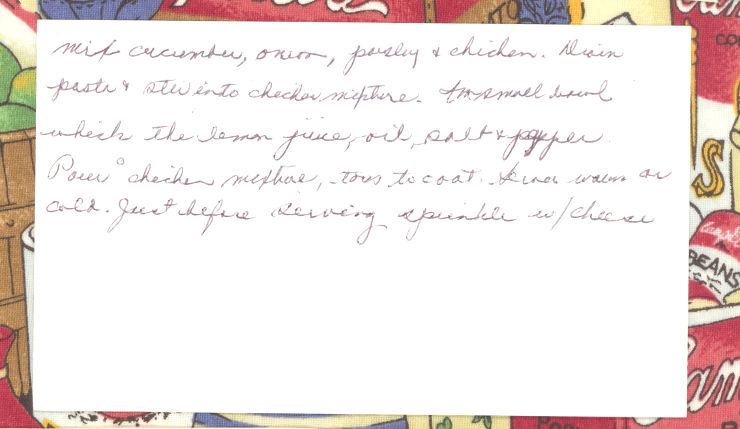 mix cucumber, onion, parsley & chicken. Drain
pasta & stir into chicken mixture. In small bowl
whisk the lemon juice, oil, salt & pepper.
Pour o chicken mixture, toss to coat. Serve warm or
cold. Just before serving sprinkle w/ cheese
CO
S
Campbell
BEANS